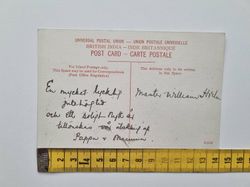 UNIVERSAL POSTAL UNION — UNION POSTALE UNIVERSELLE
BRITISH INDIA — INDE BRITANNIQUE
POST CARD — CARTE POSTALE
For Inland Postage only.
This Space may be used for Correspondence
(Post Office Regulation)
The Address only to be written
in this Space.
En mycket lycklig
julehögtid
och ett
nytt år
tillönskas
Pappa & Mamma.
Master William